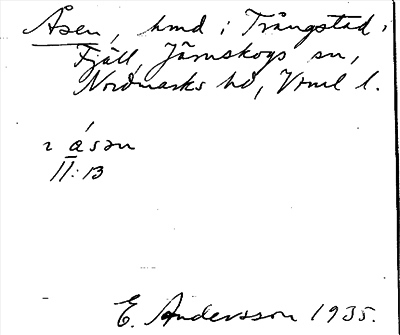 Åsen, hmd i Trångstad i
Fjäll, Järnskogs sn,
Nordmarks hd, Vrml l.
ı ásən
II:13
E. Andersson 1935.